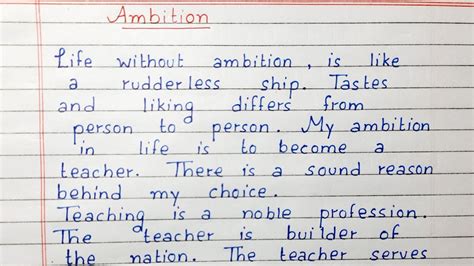 Ambition
Life without ambition, is like
a rudderless ship. Tastes
and liking differs from
person to person. My ambition
in life is to become a
teacher. There is a sound reason
behind my choice.
Teaching is a noble profession.
The teacher is builder of
the nation. The teacher serves